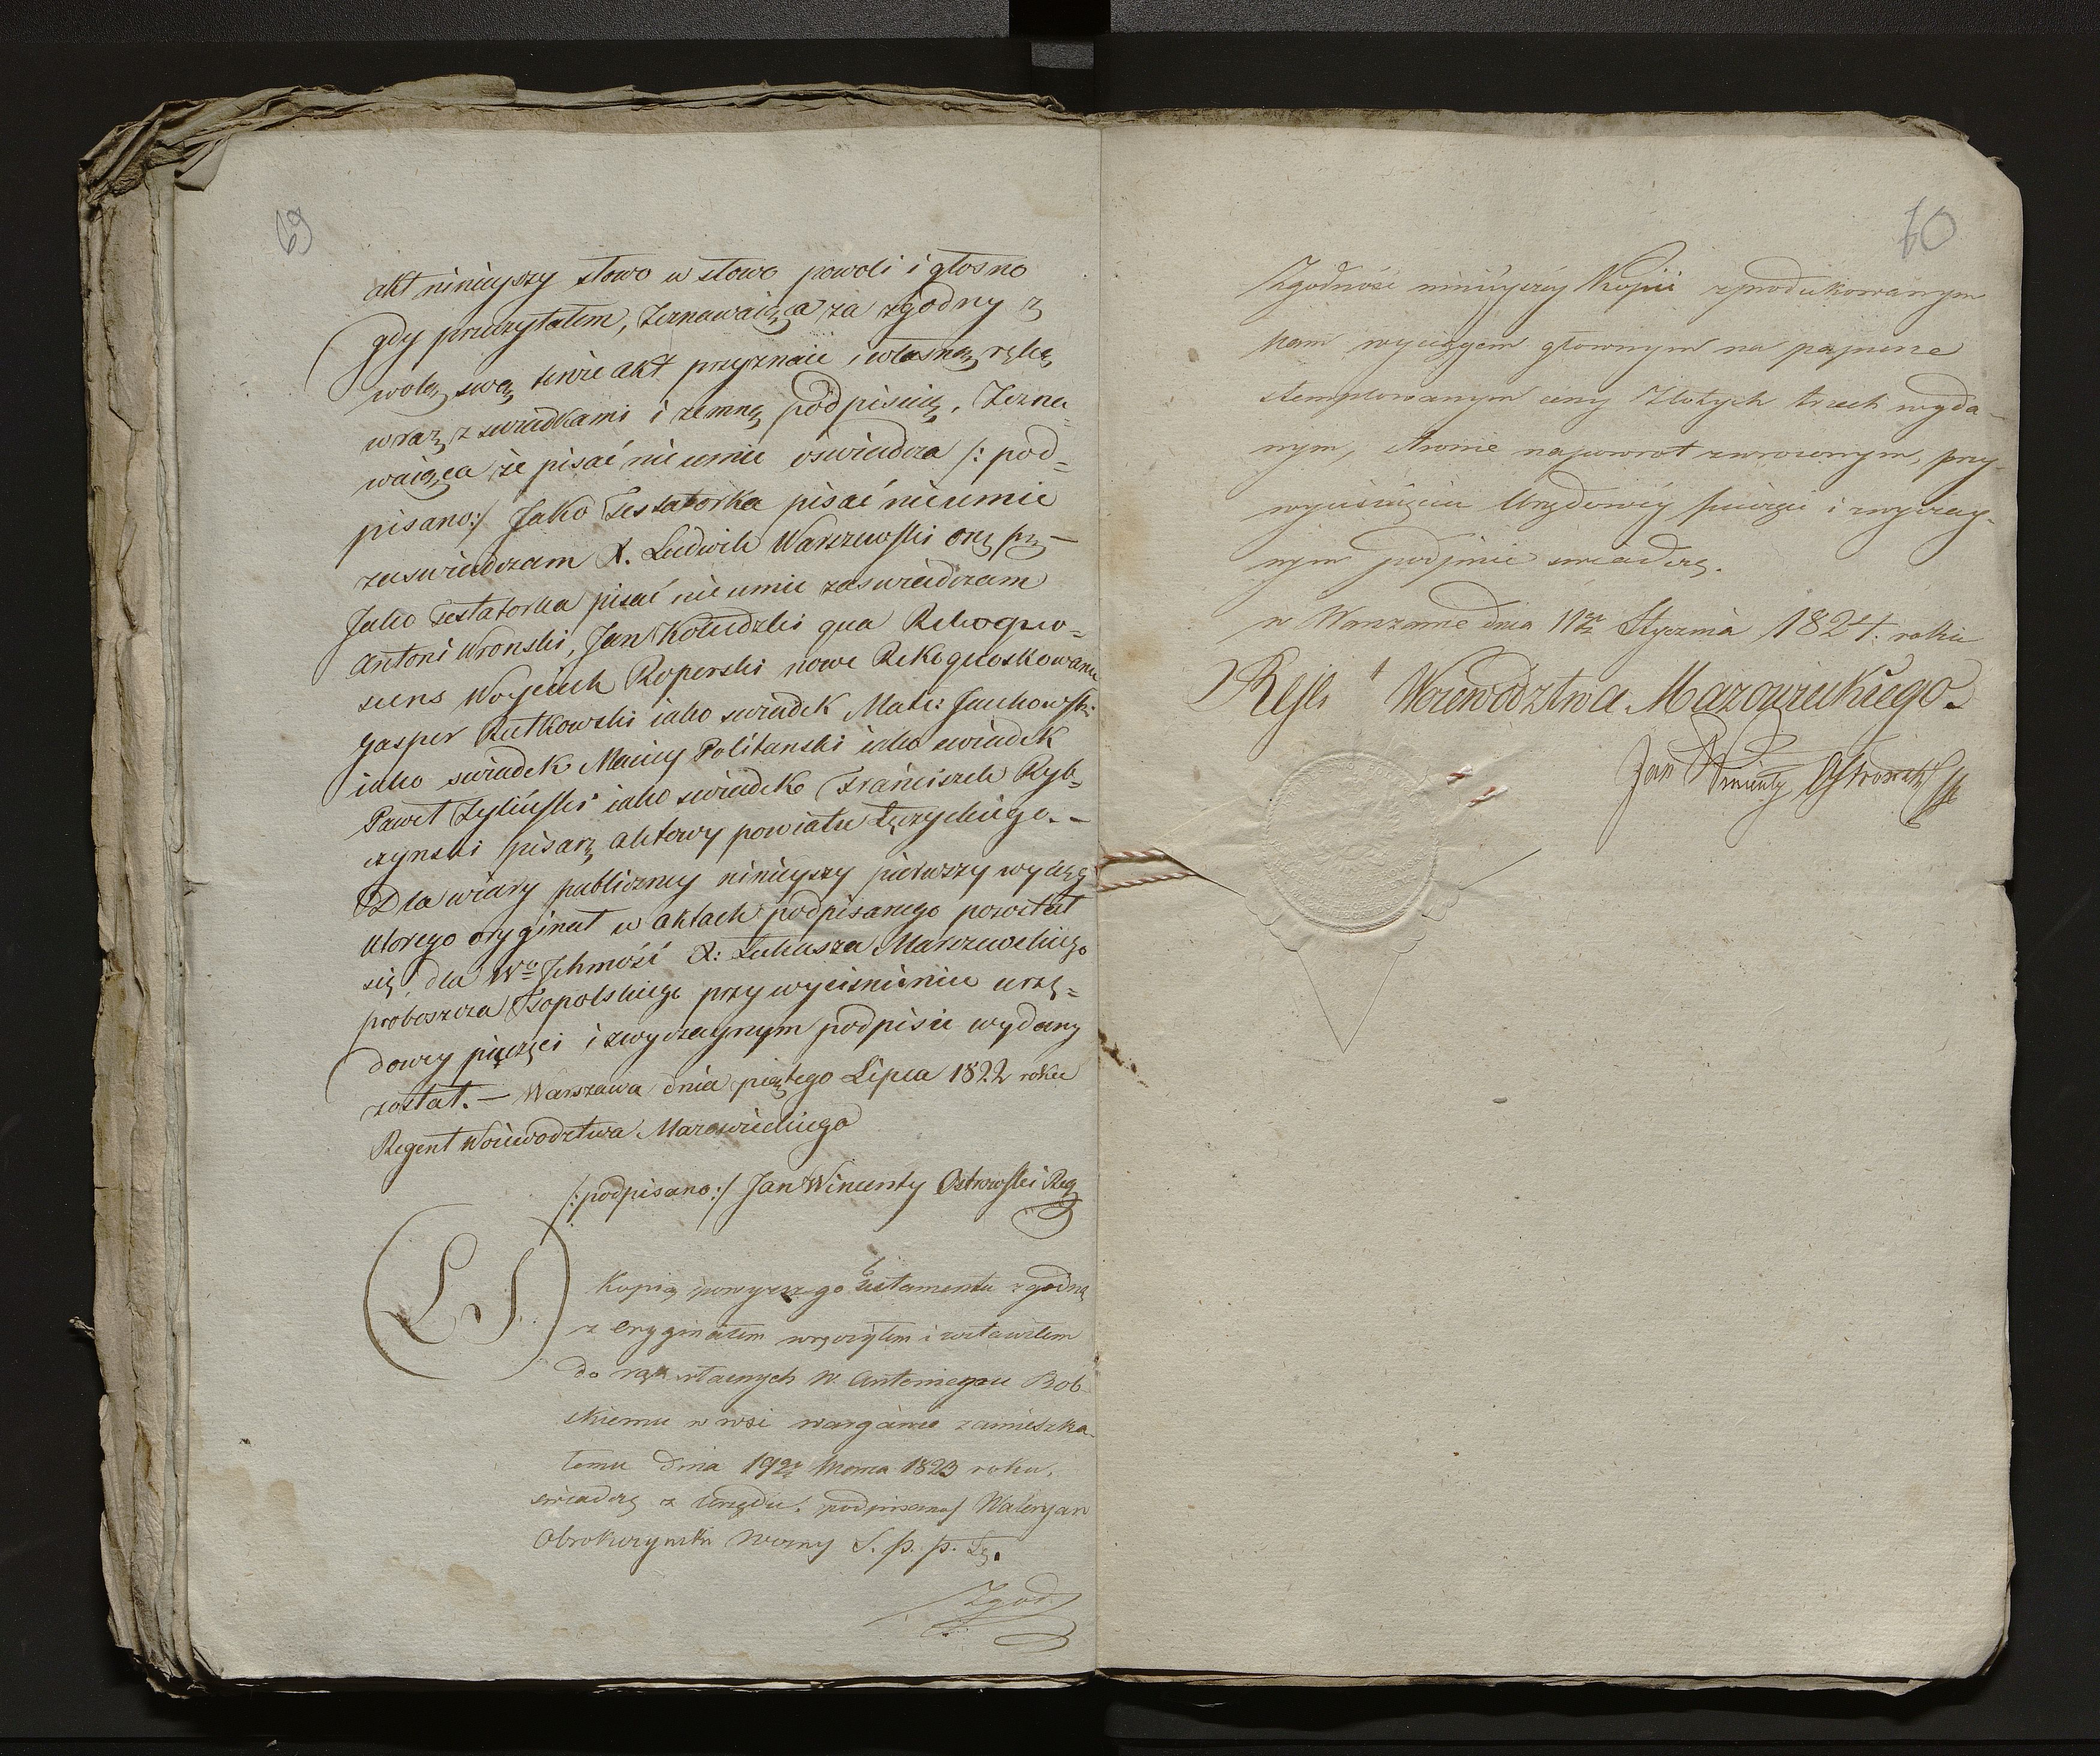 69
akt ninieyszy słowo w słowo powoli i głosno
gdy przeczytałem, Zeznawaiąca za zgodny z
wolą swą tenże akt przyznaie i własną ręką
wraz z swiadkami i zemną podpisuie, Zezna-
waiąca że pisać nie umie oświadcza /: pod=
pisano:/ Jako Testatorka pisać nieumie
zaswiadczam X. Ludwik Warszewski
Jako Testatorka pisać nie umie zaswiadczam
Antoni Wronski, Jan Kołudzki qua Rekogno=
scens Woyciech Roperski nowe Rekognoskowanie
Gasper Rutkowski iako swiadek Mate: Jachowski
iako swiadek Maciey Politanski iako swiadek
Paweł Zyliński iako swiadek Franciszek Ryb=
czynski pisarz aktowy powiatu Łęczyckiego. —
Dla wiary publiczney ninieyszy pierwszy wyciąg
ktorego oryginał w aktach podpisanego pozostał
się dla Wo Jchmość X: Łukasza Marszewskiego
proboszcza Topolskiego przy wycisnieniu urzę=
dowey pieczęci i zwyczaynym podpisie wydany
został. — Warszawa dnia piątego Lipca 1822 roku
Regent Woiewodztwa Mazowieckiego
/: podpisano:/ Jan Wincenty Ostrowski Reg
LS
Kopią powyzszego testamentu zgodną
z oryginałem wręczyłem i zostawiłem
do rąk własnych W. Antoniemu Bob
skiemu w wsi zamieszka-
łemu dnia 19go Marca 1823 roku.
swiadczę z Urzędu. podpisano/ Waleryan
Obrokczynski Wozny
Zgod
70
Zgodność ninieyszey Kopii z produkowanym
nam wyciągem głownym na papierze
stemplowanym ceny Złotych trzech wyda-
nym, Stronie napowrot zwroconym, przy
wyciśnięciu Urzędowéy pieczęci i zwyczay-
nym podpisie swiadczę.
w Warszawie dnia 11go Stycznia 1824. roku
Rejt Woiewództwa Mazowieckiego.
Jan Wincenty Ostrowski